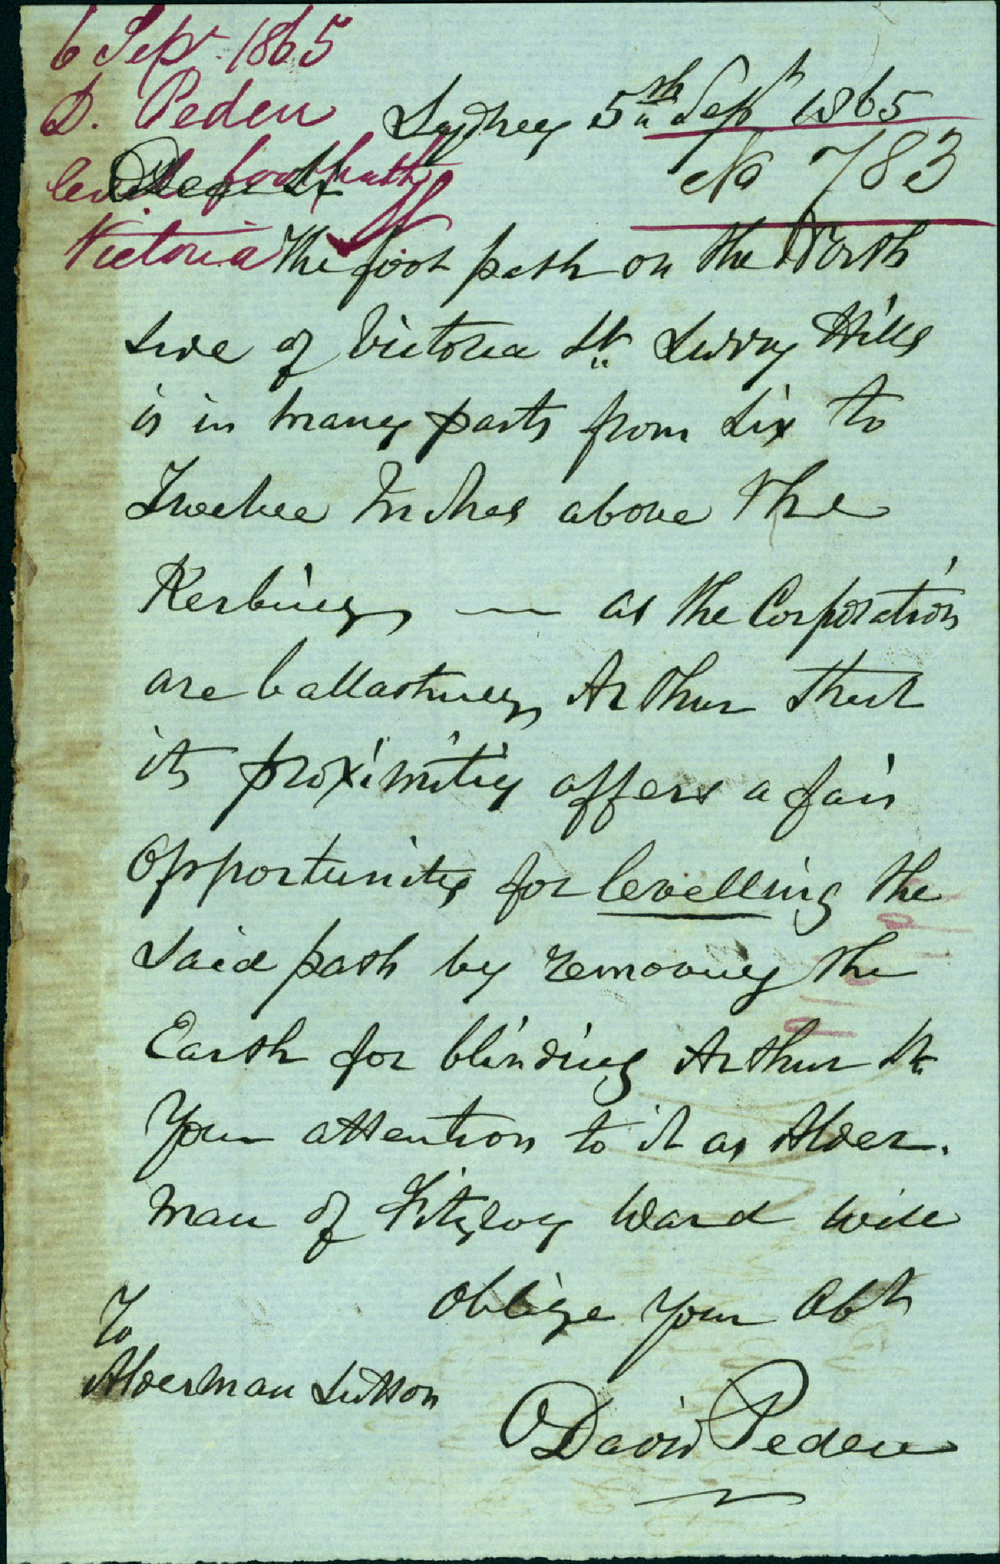 6 Sept. 1865
D. Peden
level footpath
Victoria St
Sydney 5th Sepr 1865
No 783
Dear Sir
The foot path on the North
side of Victoria St. Surry Hills
is in many parts from Six to
Twelve Inches above the
Kerbing — as the Corporation
are ballasting Arthur Street
its proximity offers a fair
Opportunity for levelling the
Said path by removing the
Earth for blinding Arthur St.
Your attention to it as Alder.
man of Fitzroy Ward will
Oblige Your Obt
To
Alderman Sutton
David Peden